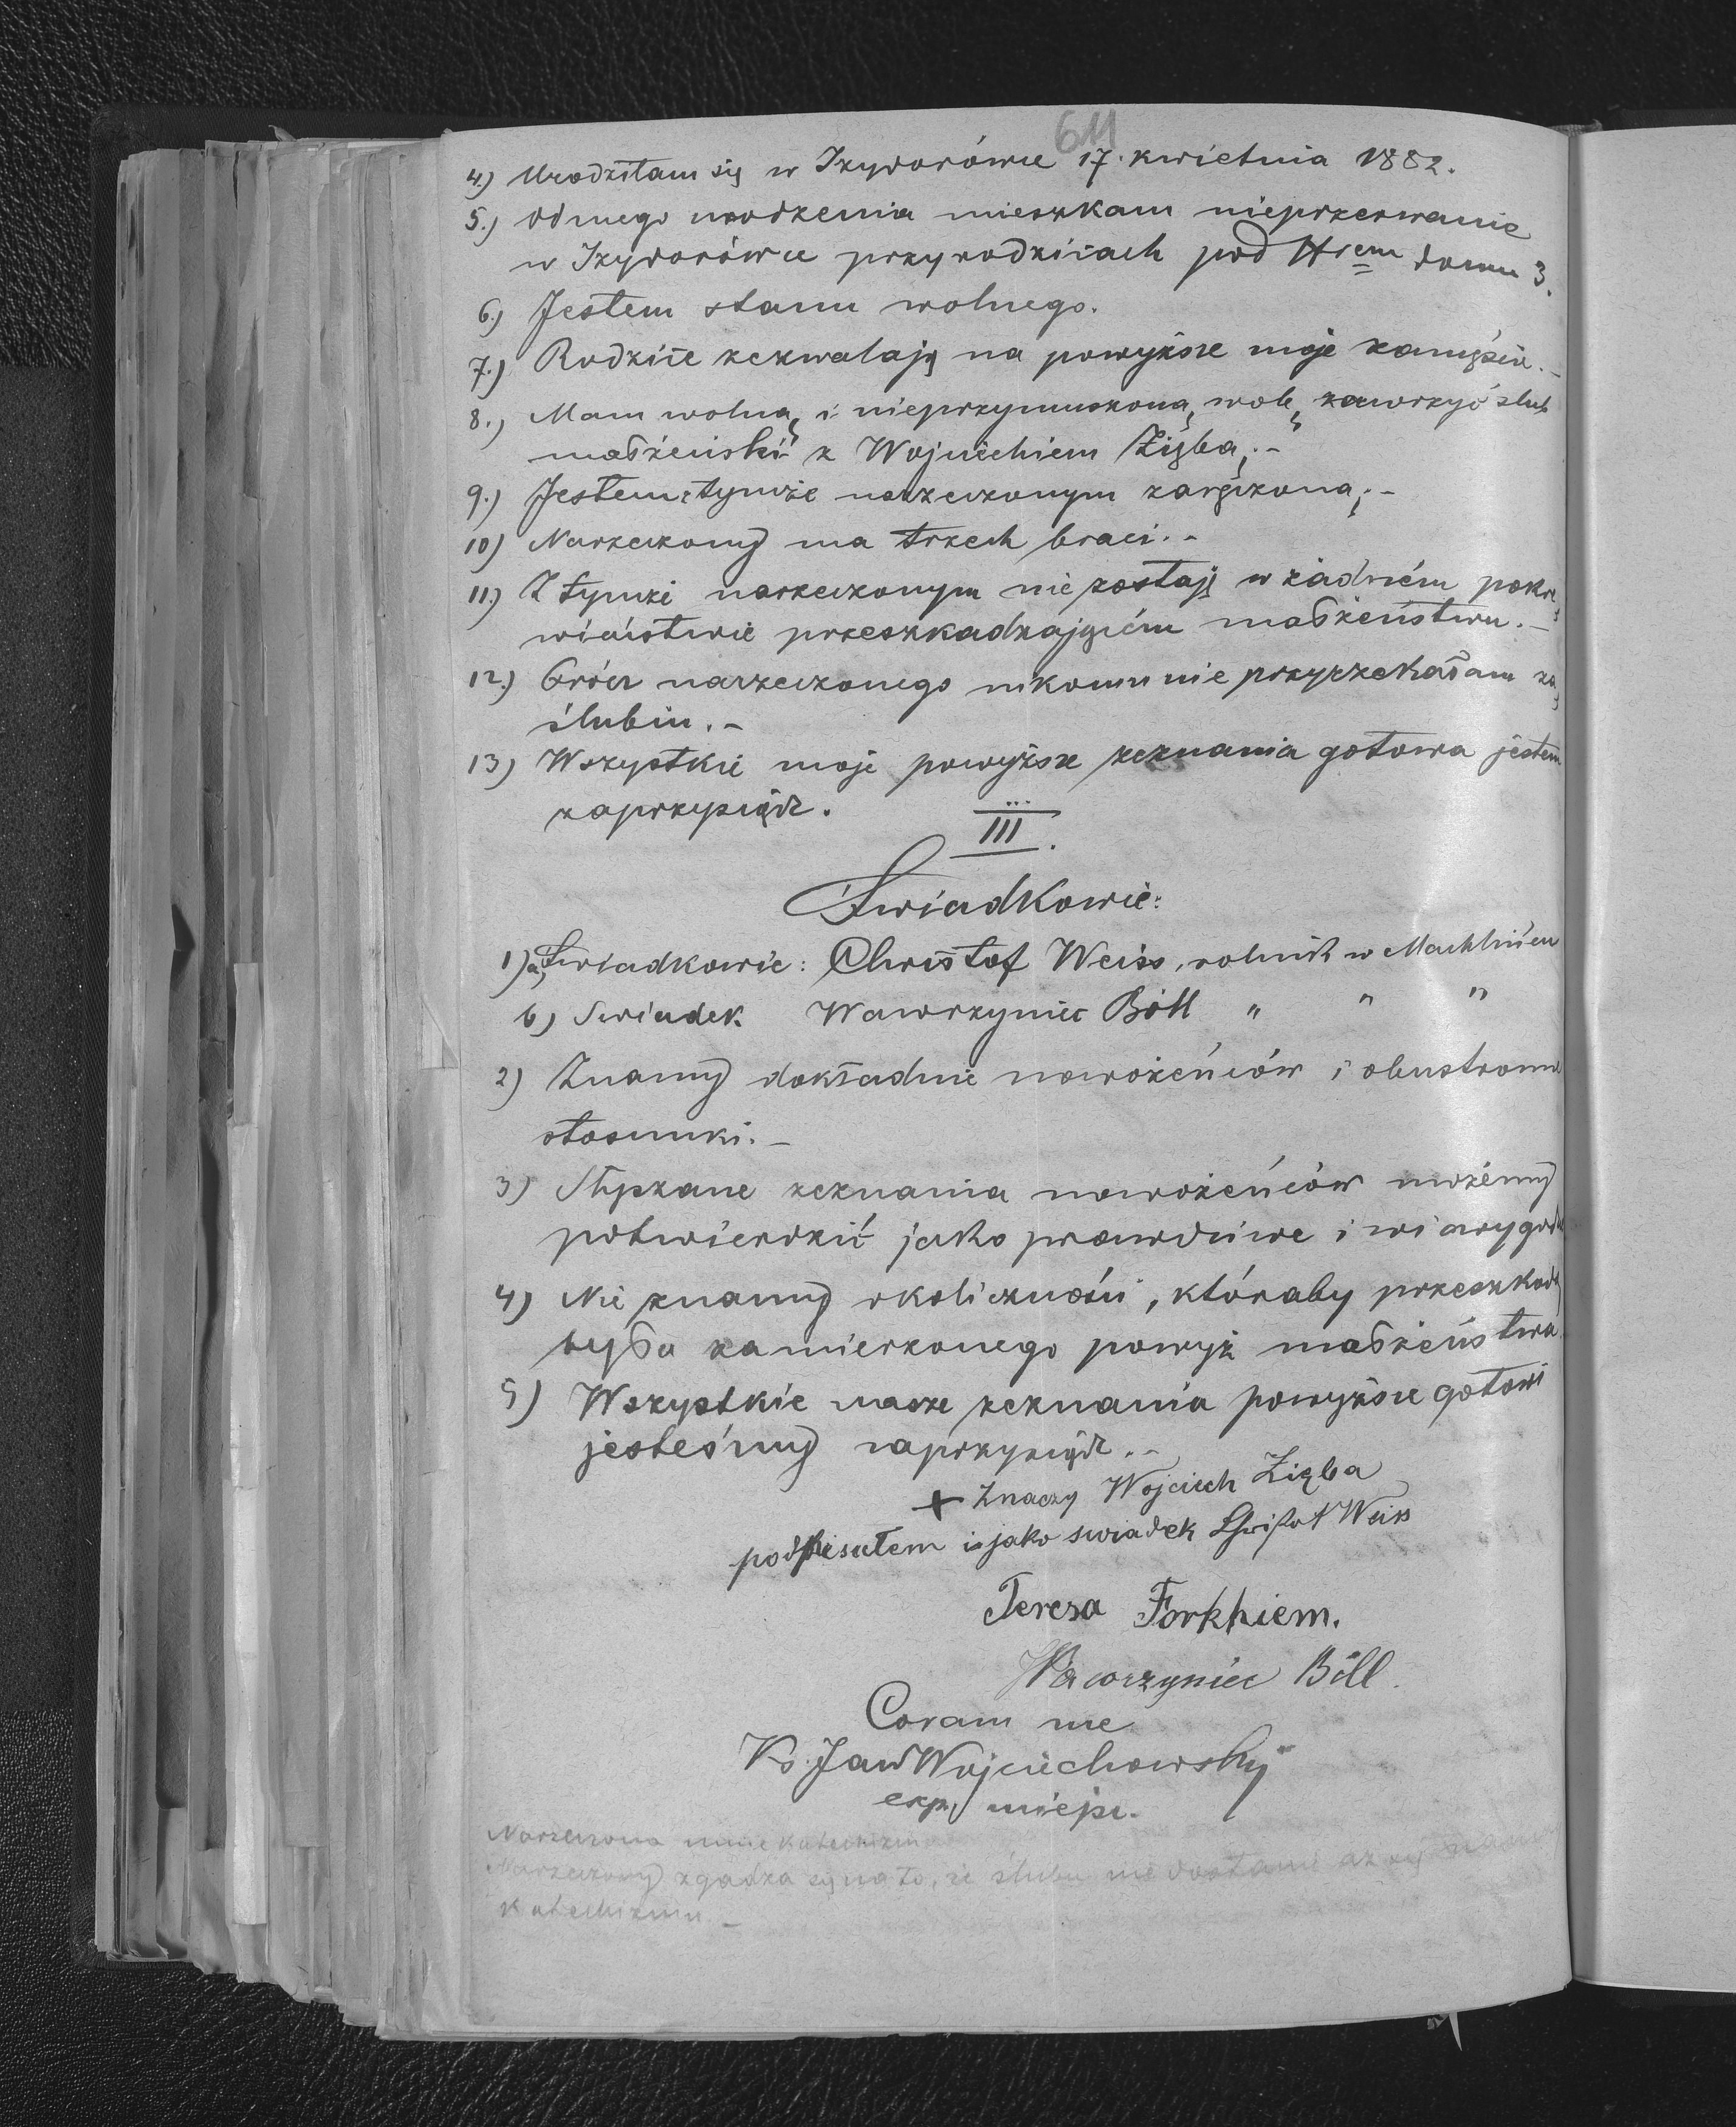 611
4.) Urodziłam się w Izydorówce 17. kwietnia 1882.
5.) Od mego urodzenia mieszkam nieprzerwanie
w Izydorówce przy rodzicach pod Nrem domu 3.
6.) Jestem stanu wolnego.
7.) Rodzice zezwalają na powyższe moje zamęście.-
8.) Mam wolną i nieprzymuszoną wolę zawrzyć ślub
małżeński z Wojciechiem Ziębą.-
9.) Jestem z tymże narzeczonym zaręczoną.-
10) Narzeczony ma trzech braci.-
11.) Z tymże narzeczonym nie zostaję w żadném pokre
wieństwie przeszkadzającém małżeństwu.-
12.) Prócz narzeczonego nikomu nie przyrzekałam za
ślubin.-
13) Wszystkie moje powyższe zeznania gotowa jestem
zaprzysiądz.
III.
Świadkowie:
1) a) Świadkowie: Christof Weiss, rolnik w Machlińcu
b) Świadek Wawrzyniec Böll " " "
2) Znamy dokładnie nowożeńców i obustronne
stosunki.-
3) Słyszane zeznania nowożeńców możémy
potwierdzić jako prawdziwe i wiarygod
4) Nie znamy okoliczności, któraby przeszkodą
była zamierzonego powyż małżeństwa
5) Wszystkie nasze zeznania powyższe gotowi
jesteśmy zaprzysiądz.-
+ Znaczy Wojciech Zięba
podpisałem i jako swiadek Christof Weiss
Teresa Forkhiem.
Wawrzyniec Böll.
Coram me
Ks. Jan Wojciechowsky
exp. miejsc.
Narzeczona umie katechizm
Narzeczony zgadza się na to, że ślubu nie dostanie aż się
katechizmu.-